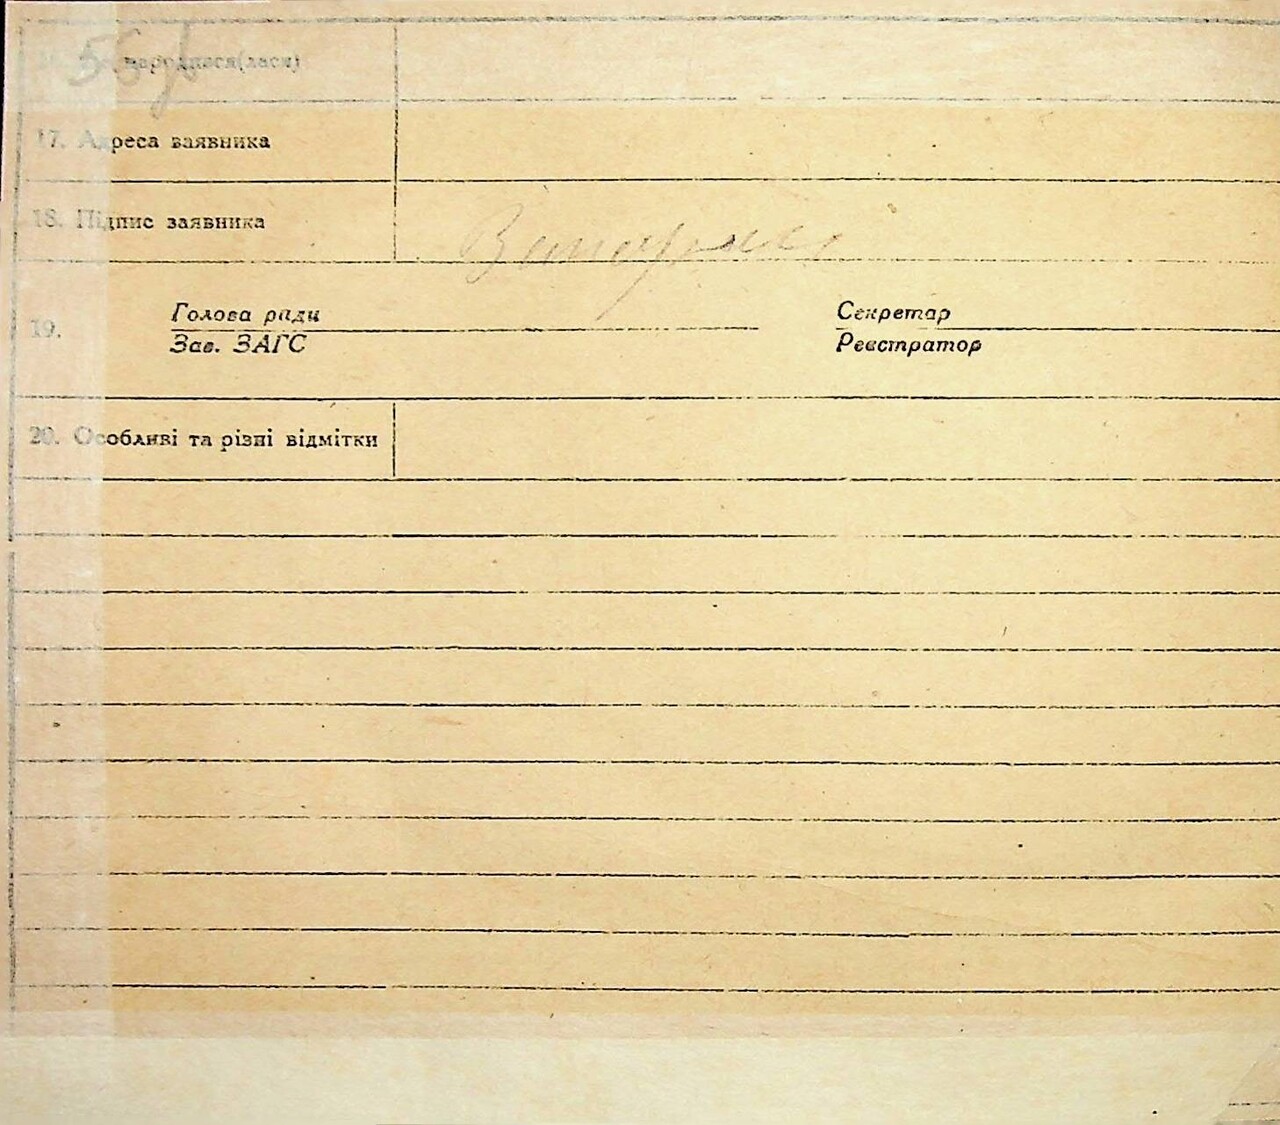 народився(лася)
17. Адреса заявника
18. Підпис заявника
19.
Голова ради
Зав. ЗАГС
Секретар
Реєстратор
20. Особливі та різні відмітки